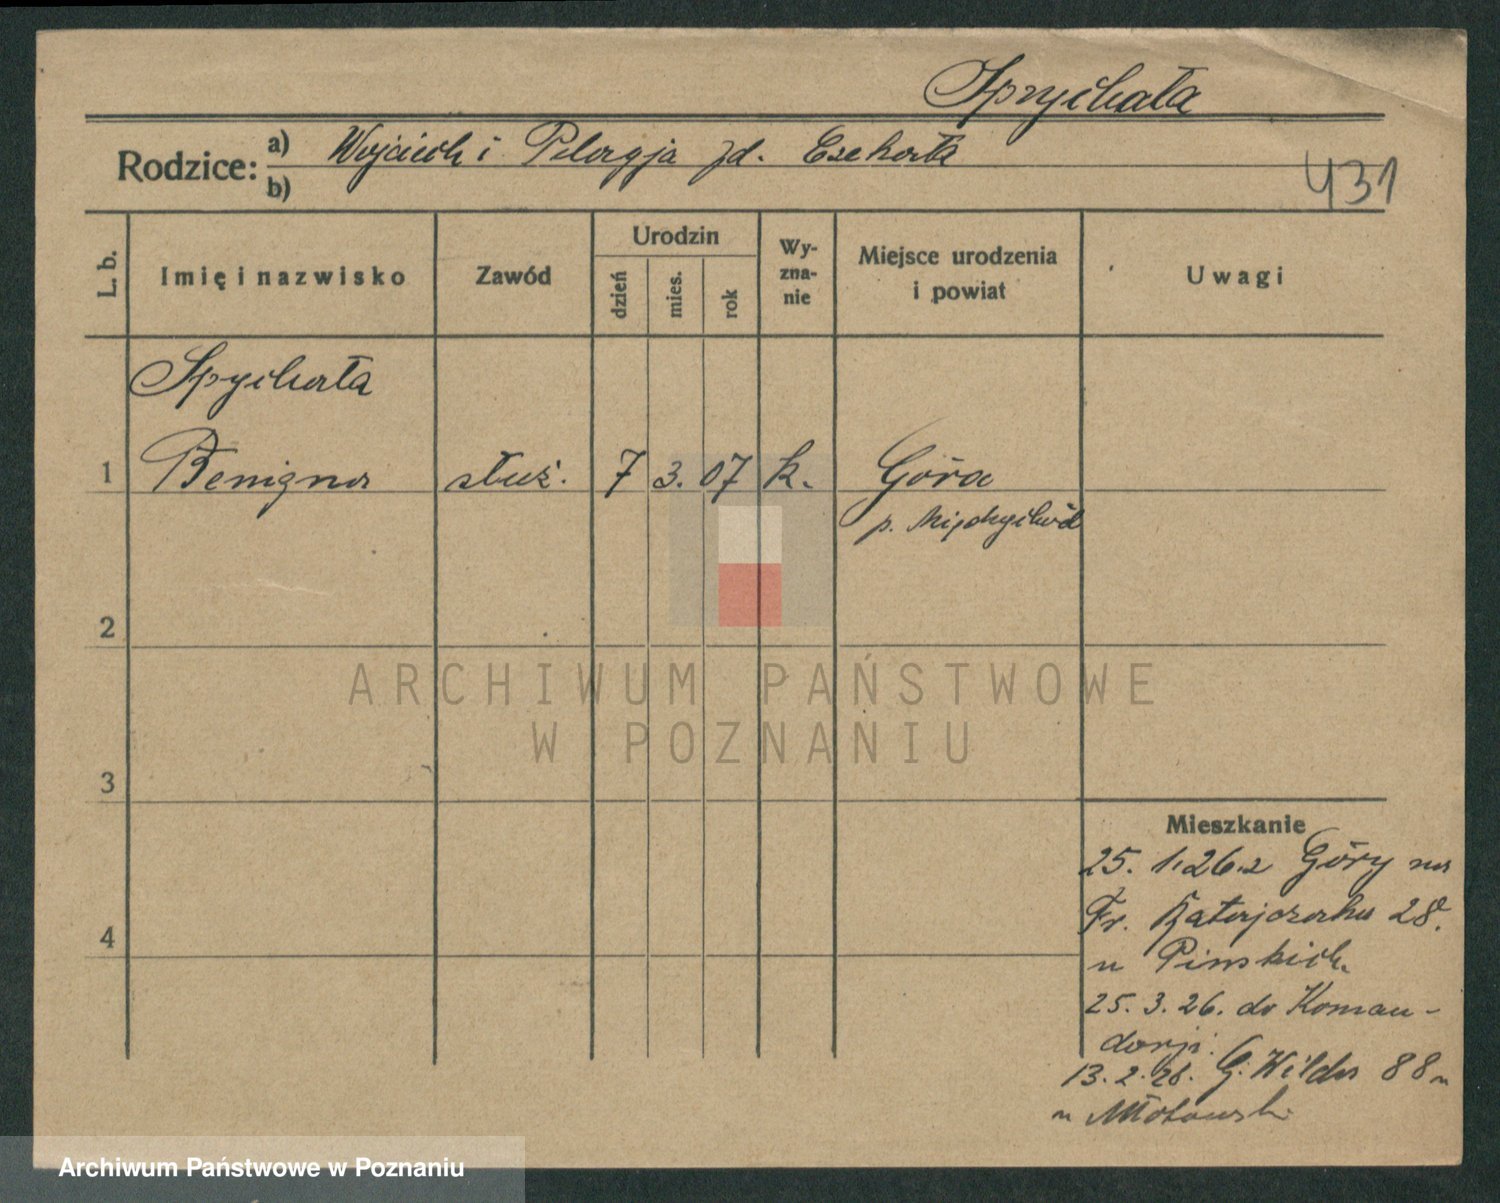 Spychała
Rodzice: a) Wojciech i Pelagja
b)
431
L. b.
Imię i nazwisko
Zawód
Urodzin
dzień
mies.
rok
Wy-
zna-
nie
Miejsce urodzenia
i powiat
Uwagi
Spychała
1 Benigna służ. 7 3. 07 k. Góra
p. Międzychód
2
3
4
Mieszkanie
25. 1. 26. z Góry na
Fr. Ratajczaka 28.
u Pinskich.
25. 3. 26. do Koman-
dorji.
13. 2. 28. G. Wilda 88
u
ARCHIWUM PAŃSTWOWE
W POZNANIU
Archiwum Państwowe w Poznaniu